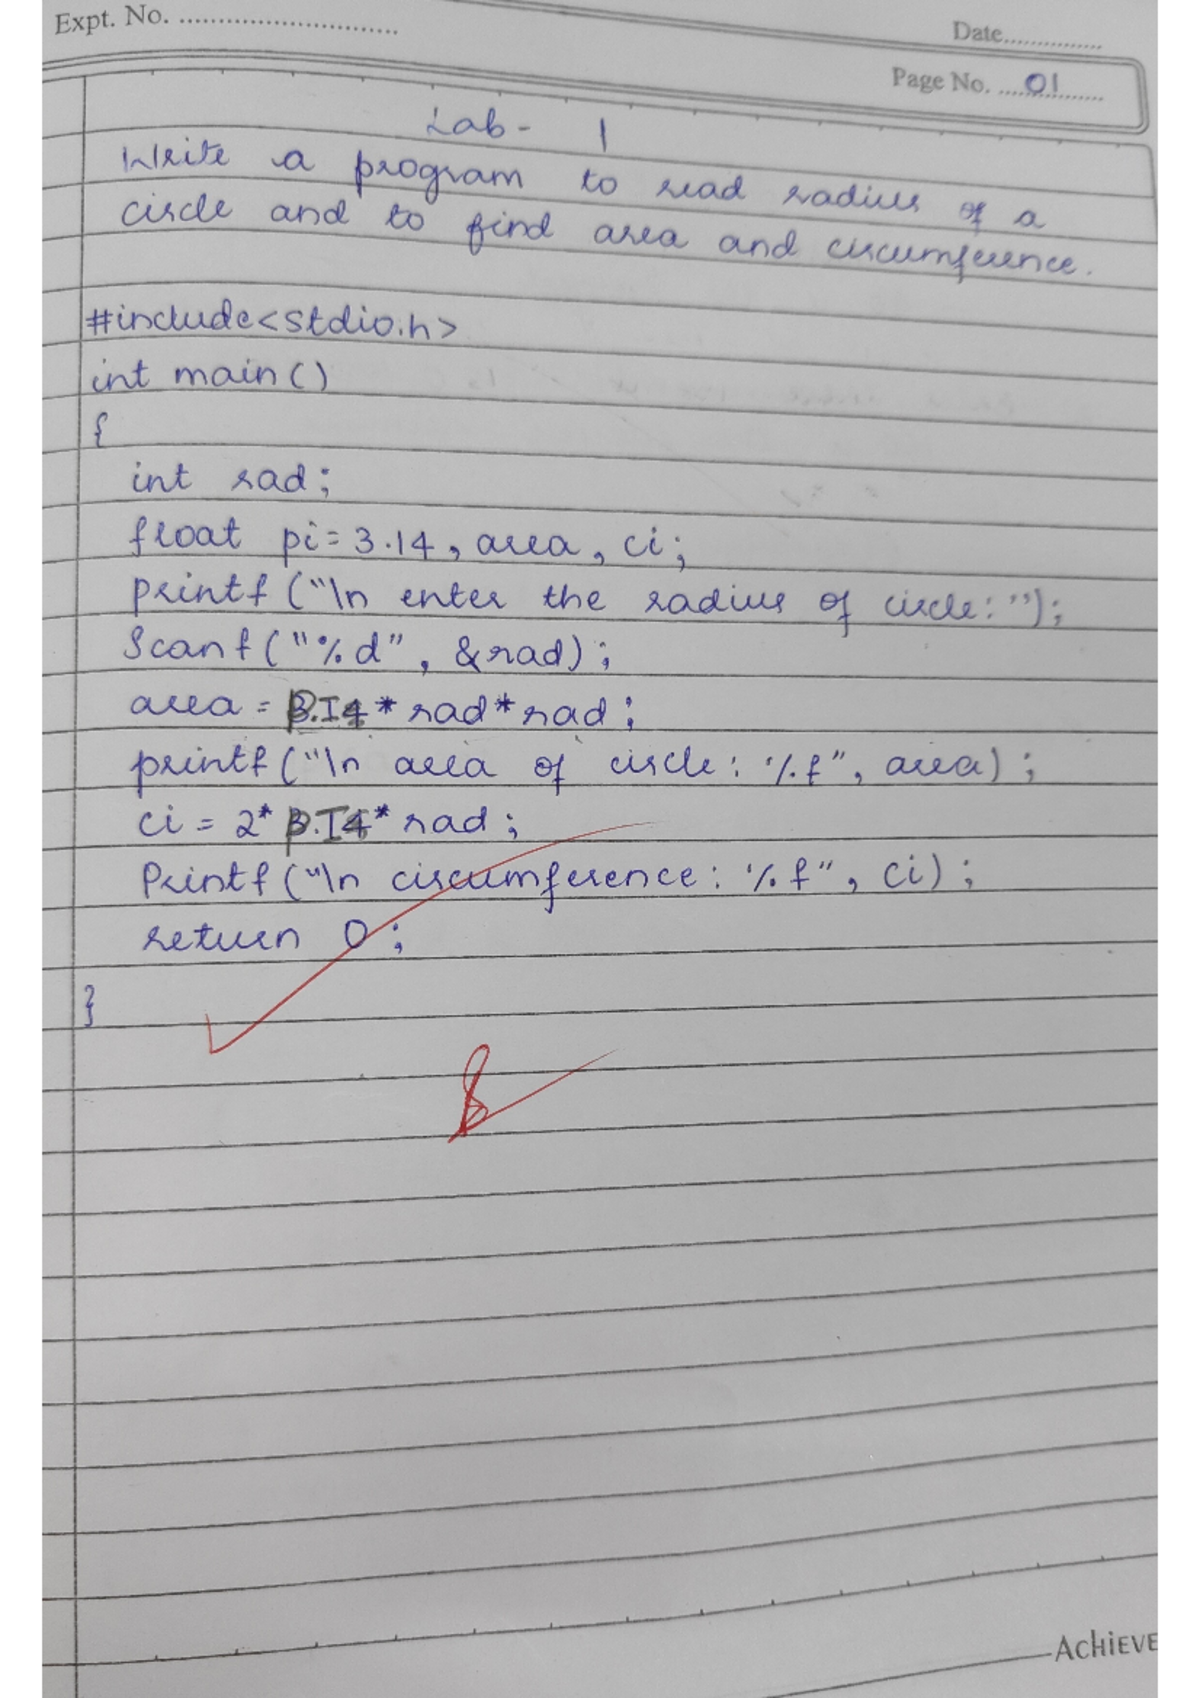 Expt. No. ..............................
Date...............
Page No. .....01.........
Lab - 1
Write a program to read radius of a
circle and to find area and circumference.
#include<stdio.h>
int main()
{
int rad;
float pi=3.14, area, ci;
printf ("\n enter the radius of circle: ");
Scanf ("%d", &rad);
area = * rad * rad;
printf ("\n area of circle: %f", area);
ci = 2* * rad;
Printf ("\n circumference: %f", ci);
return 0;
}
ACHIEVE